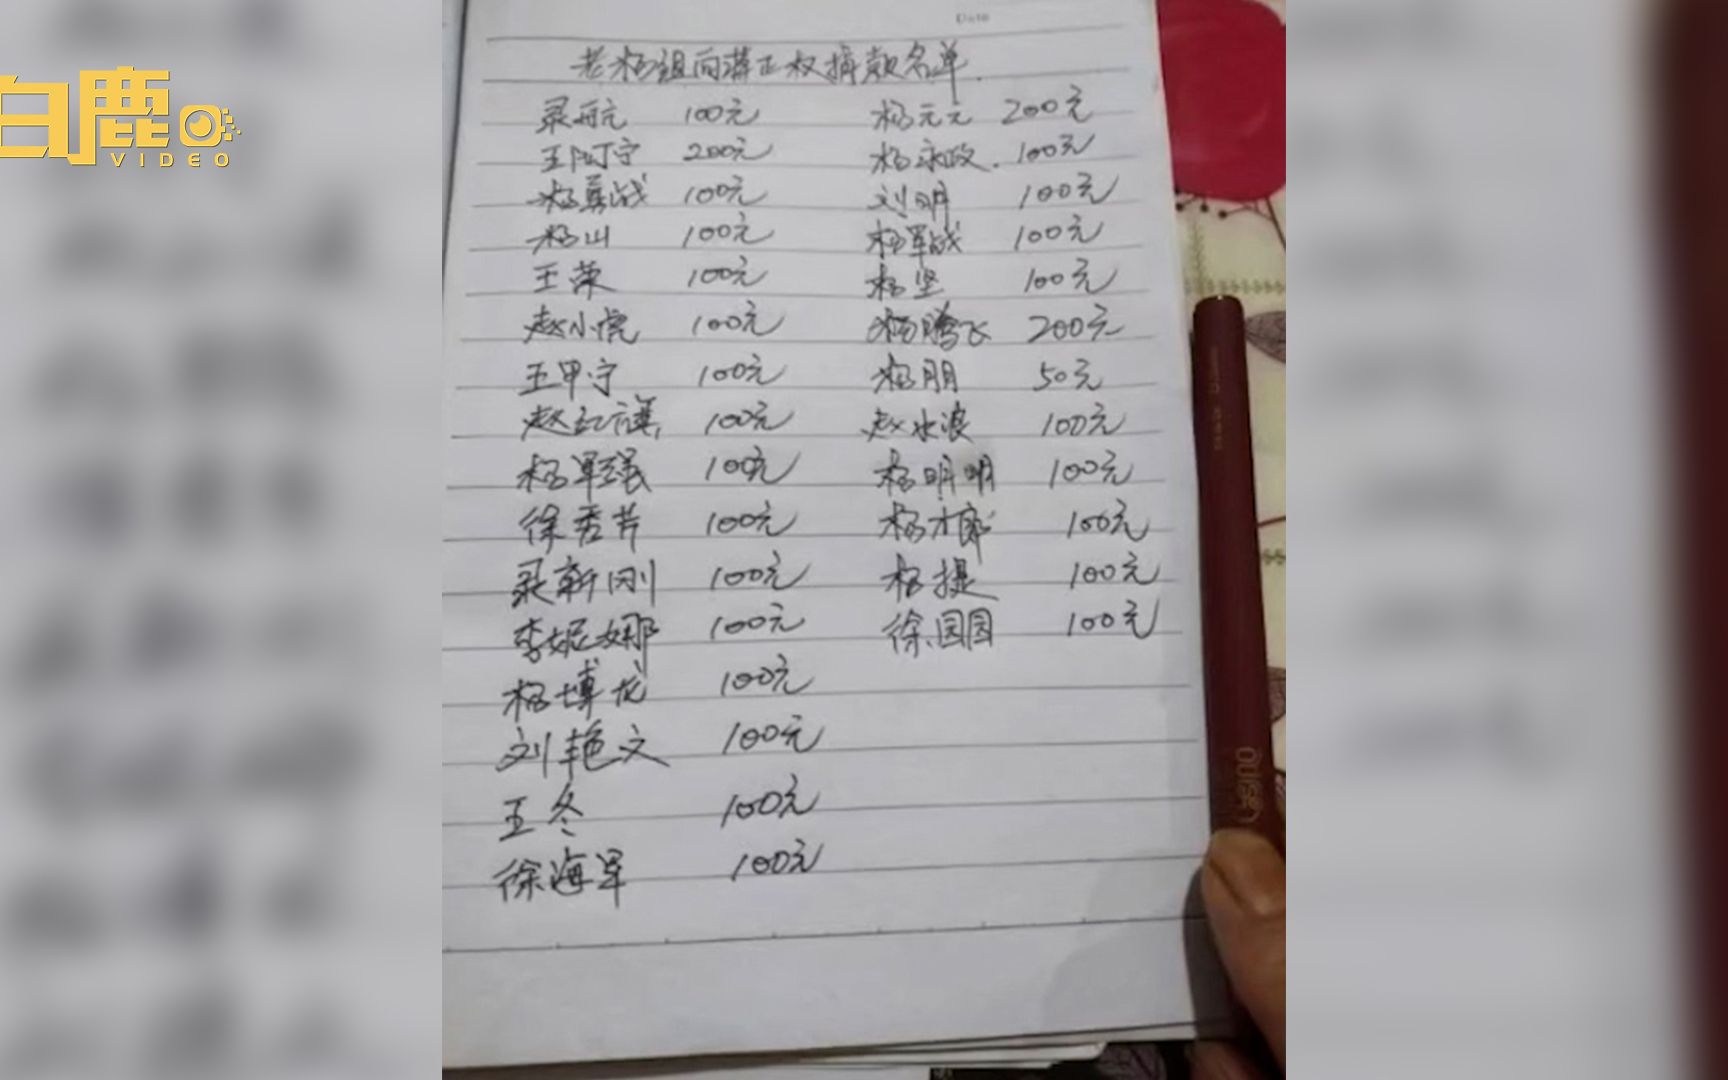 白鹿
VIDEO
Date
老杨组向蒋正权捐款名单
录航 100元 杨元元 200元
王阿宁 200元 杨永政 100元
杨勇战 100元 刘明 100元
杨山 100元 杨军战 100元
王荣 100元 杨坚 100元
赵小虎 100元 杨腾飞 200元
王甲宁 100元 杨朋 50元
赵红旗 100元 赵水浪 100元
杨军强 100元 杨明明 100元
徐秀芹 100元 杨才郎 100元
录新刚 100元 杨提 100元
李妮娜 100元 徐园园 100元
杨博龙 100元
刘艳文 100元
王冬 100元
徐海军 100元